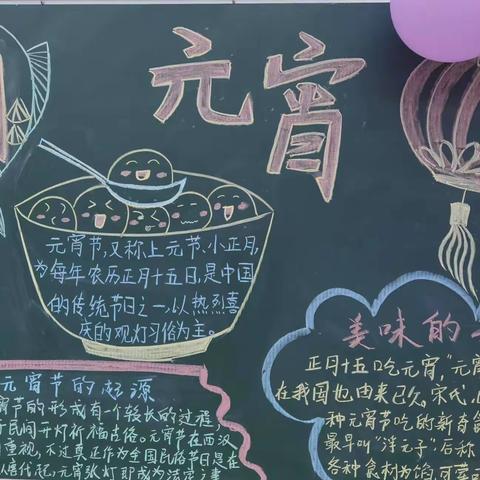 元宵
元宵节,又称上元节、小正月,
为每年农历正月十五日,是中国
的传统节日之一,以热烈喜
庆的观灯习俗为主。
元宵节的起源
宵节的形成有一个较长的过程,
民间开灯祈福古俗。元宵节在西汉
重视,不过真正作为全国民俗节日是在
唐代起,元宵张灯即成为法定之事
美味的
正月十五吃元宵,"元宵
在我国也由来已久。宋代,
种元宵节吃的新奇食
最早叫"浮元子"后称
各种食材为馅,可荤可